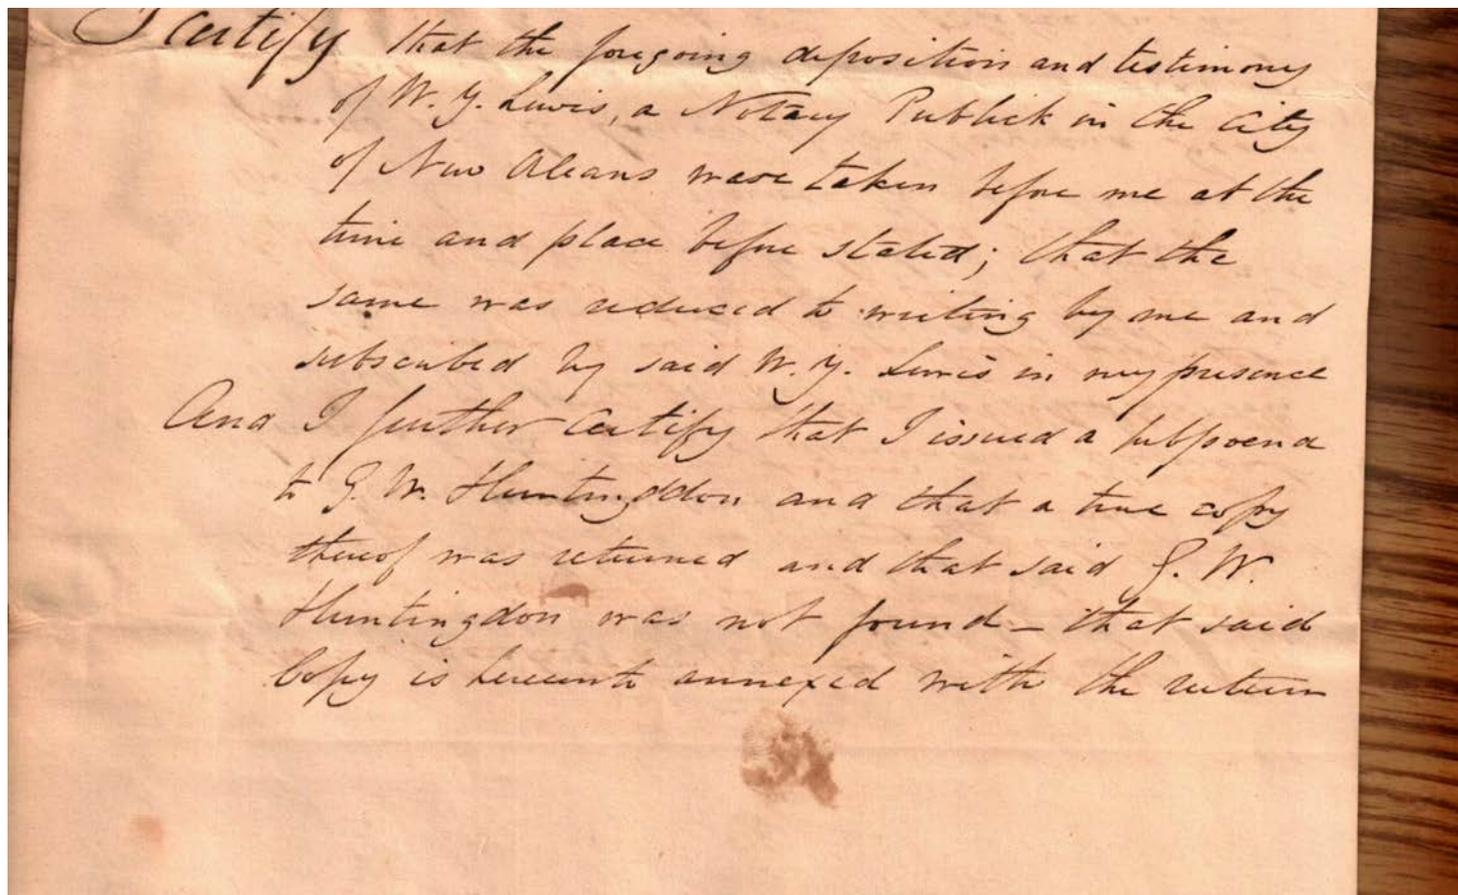 I certify that the foregoing deposition and testimony
of W. Y. Lewis, a Notary Publick in the City
of New Orleans were taken before me at the
time and place before stated; that the
same was reduced to writing by me and
subscribed by said W. Y. Lewis in my presence
And I further certify that I issued a subpoena
to G. W. Huntingddon and that a true copy
thereof was returned and that said G. W.
Huntingdon was not found – that said
Copy is hereunto annexed with the return